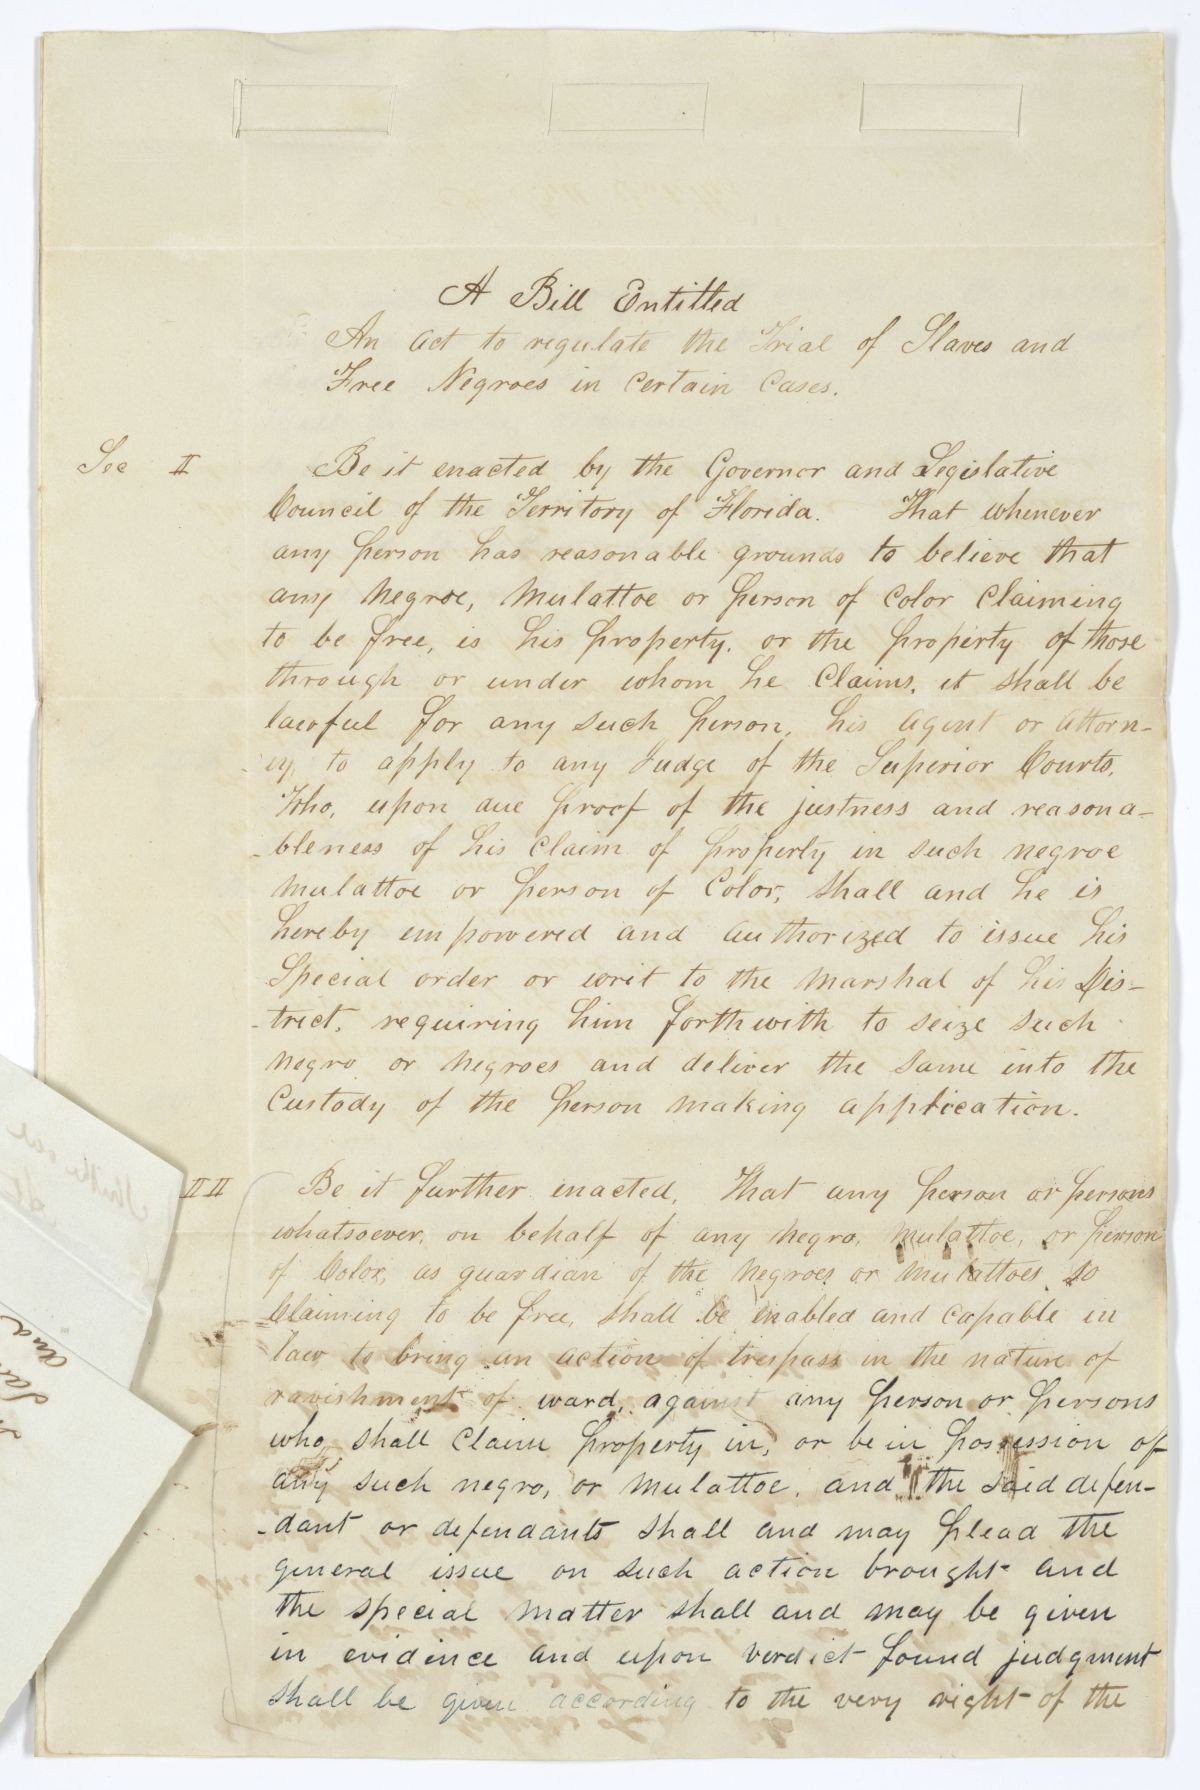 A Bill Entitled
An act to regulate the Trial of Slaves and
Free Negroes in Certain Cases.
Sec II Be it enacted by the Governor and Legislative
Council of the Territory of Florida. That whenever
any person has reasonable grounds to believe that
any Negroe, Mulattoe or person of Color Claiming
to be free, is his property, or the property of those
through or under whom he Claims, it shall be
lawful for any such person, his agent or attorn-
ey, to apply to any Judge of the Superior Courts,
Who, upon due proof of the justness and reasona-
-bleness of his Claim of property in such negroe
Mulattoe or person of Color, shall and he is
hereby empowered and authorized to issue his
Special order or writ to the Marshal of his Dis-
-trict, requiring him forthwith to seize such
negro or negroes and deliver the same into the
Custody of the person making application.
III Be it further enacted, That any person or persons
whatsoever, on behalf of any negro, mulattoe, or person
of Color, as guardian of the Negroes or Mulattoes so
Claiming to be free, shall be enabled and capable in
law to bring an action of trespass in the nature of
ravishment of ward, against any person or persons
who shall Claim property in, or be in possession of
any such negro, or mulattoe, and the said defen-
-dant or defendants shall and may plead the
general issue on such action brought and
the special matter shall and may be given
in evidence and upon verdict found judgment
shall be given according to the very right of the
and